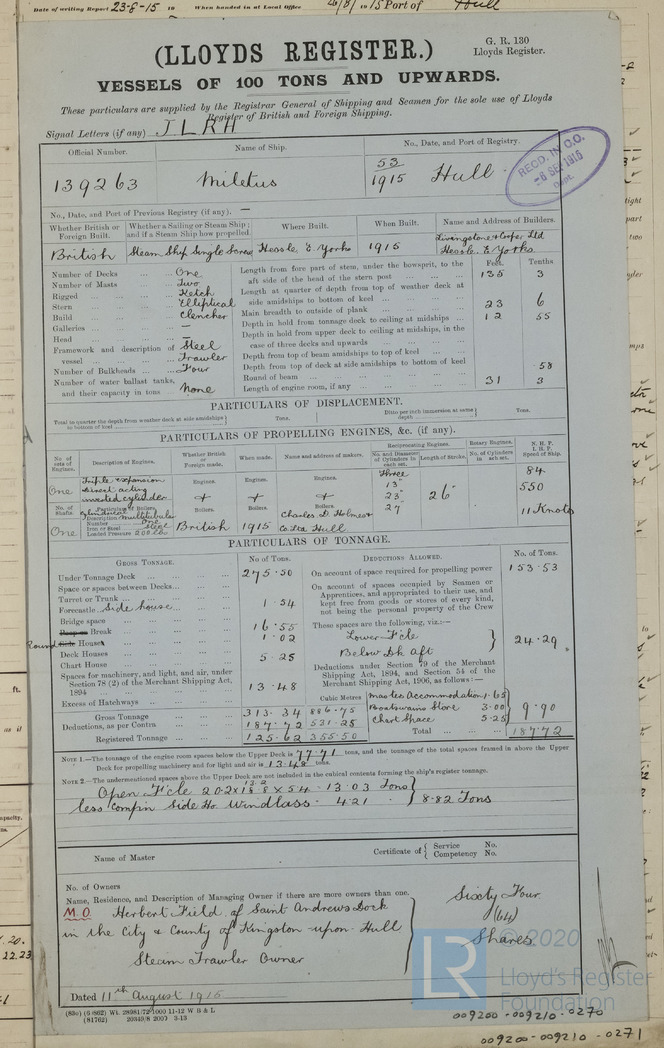 Date of writing Report 23-8-15 19 When handed in at Local Office 4/8/1915 Port of Hull
(LLOYDS REGISTER.)
G. R. 130
Lloyds Register.
VESSELS OF 100 TONS AND UPWARDS.
These particulars are supplied by the Registrar General of Shipping and Seamen for the sole use of Lloyds
Register of British and Foreign Shipping.
Signal Letters (if any) JLRH
Official Number. Name of Ship. No., Date, and Port of Registry.
139263 Miletus 53/1915 Hull
RECD. IN C.O.
-6 SEP 1915
Dept.
No., Date, and Port of Previous Registry (if any). —
Whether British or Foreign Built. Whether a Sailing or Steam Ship; and if a Steam Ship how propelled. Where Built. When Built. Name and Address of Builders.
British Steam Ship Single Screw Hessle E Yorks 1915 Livingstone & Cooper Ltd Hessle E Yorks
Feet. Tenths
Number of Decks One
Number of Masts Two
Rigged Ketch
Stern Elliptical
Build Clencher
Galleries —
Head —
Framework and description of vessel Steel Trawler
Number of Bulkheads Four
Number of water ballast tanks, and their capacity in tons None
Length from fore part of stem, under the bowsprit, to the aft side of the head of the stern post 135 3
Length at quarter of depth from top of weather deck at side amidships to bottom of keel
Main breadth to outside of plank 23 6
Depth in hold from tonnage deck to ceiling at midships 12 55
Depth in hold from upper deck to ceiling at midships, in the case of three decks and upwards
Depth from top of beam amidships to top of keel
Depth from top of deck at side amidships to bottom of keel
Round of beam .58
Length of engine room, if any 31 3
PARTICULARS OF DISPLACEMENT.
Total to quarter the depth from weather deck at side amidships to bottom of keel Tons. Ditto per inch immersion at same depth Tons.
PARTICULARS OF PROPELLING ENGINES, &c. (if any).
No. of sets of Engines. Description of Engines. Whether British or Foreign made. When made. Name and address of makers. Reciprocating Engines. Rotary Engines. N. H. P.
No. and Diameter of Cylinders in each set. Length of Stroke. No. of Cylinders in each set. I. H. P. Speed of Ship.
One Triple expansion direct acting inverted cylinder Engines. Engines. Engines. Three 13" 23" 37 26" 84 550 11 Knots
No. of Shafts. Particulars of Boilers. Boilers. Boilers. Boilers.
Description Cylindrical Multitubular
Number One
Iron or Steel Steel
Loaded Pressure 200 lb
One British 1915 Charles D. Holmes & Co. Ltd Hull
PARTICULARS OF TONNAGE.
GROSS TONNAGE. No of Tons. DEDUCTIONS ALLOWED. No. of Tons.
Under Tonnage Deck 275.50
Space or spaces between Decks
Turret or Trunk
Forecastle Side house 1.54
Bridge space
Break 16.55
Round Houses 1.02
Deck Houses 5.25
Chart House
Spaces for machinery, and light, and air, under Section 78 (2) of the Merchant Shipping Act, 1894 13.48
Excess of Hatchways
Gross Tonnage 313.34
Deductions, as per Contra 187.72
Registered Tonnage 125.62
Cubic Metres
886.75
531.25
355.50
On account of space required for propelling power 153.53
On account of spaces occupied by Seamen or Apprentices, and appropriated to their use, and kept free from goods or stores of every kind, not being the personal property of the Crew
These spaces are the following, viz.:—
Lower F'cle
Below Dk Aft
24.29
Deductions under Section 79 of the Merchant Shipping Act, 1894, and Section 54 of the Merchant Shipping Act, 1906, as follows:—
Master Accommodation 1.65
Boatswains Store 3.00
Chart Space 5.25
9.90
Total 187.72
NOTE 1.—The tonnage of the engine room spaces below the Upper Deck is 77.71 tons, and the tonnage of the total spaces framed in above the Upper
Deck for propelling machinery and for light and air is 13.48 tons.
NOTE 2.—The undermentioned spaces above the Upper Deck are not included in the cubical contents forming the ship's register tonnage.
Open F'cle 20.2 x x 5.4 = 13.03 Tons
less Compn Side Ho. Windlass. 4.21 8.82 Tons
Name of Master Certificate of Service No.
Competency No.
No. of Owners
Name, Residence, and Description of Managing Owner if there are more owners than one.
M.O. Herbert Field of Saint Andrews Dock
in the City & County of Kingston upon Hull
Steam Trawler Owner
Sixty Four
(64)
Shares
Dated 11th August 1915
(830) (6 802) Wt. 28981/72 1000 11-12 W B & L
(81762) 20349/8 2000 3-13
© 2020
LR Lloyd's Register
Foundation
009200-009210-0270
009200-009210-0271